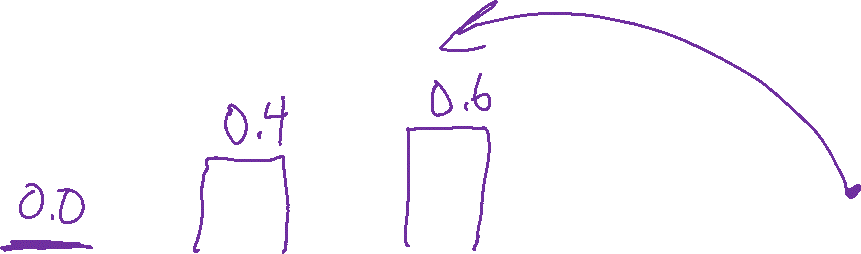 0.0
0.4
0.6